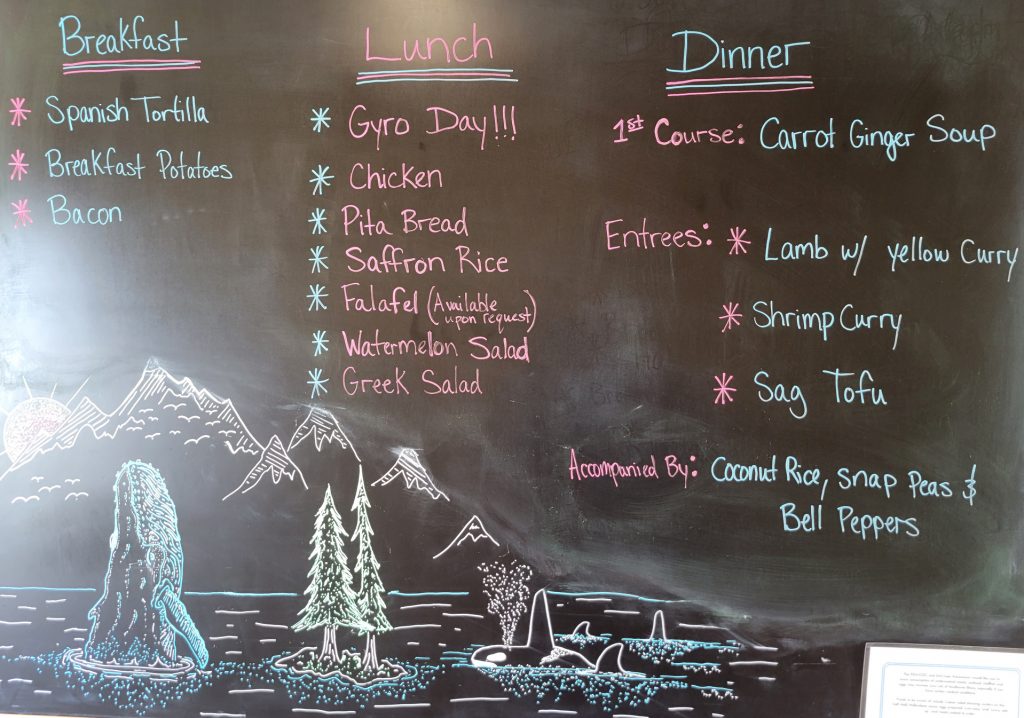 Breakfast
Spanish Tortilla
Breakfast Potatoes
Bacon
Lunch
Gyro Day!!!
Chicken
Pita Bread
Saffron Rice
Falafel (Available
upon request)
Watermelon Salad
Greek Salad
Dinner
1st Course: Carrot Ginger Soup
Entrees: Lamb w/ yellow Curry
Shrimp Curry
Sag Tofu
Accompanied By: Coconut Rice, Snap Peas &
Bell Peppers